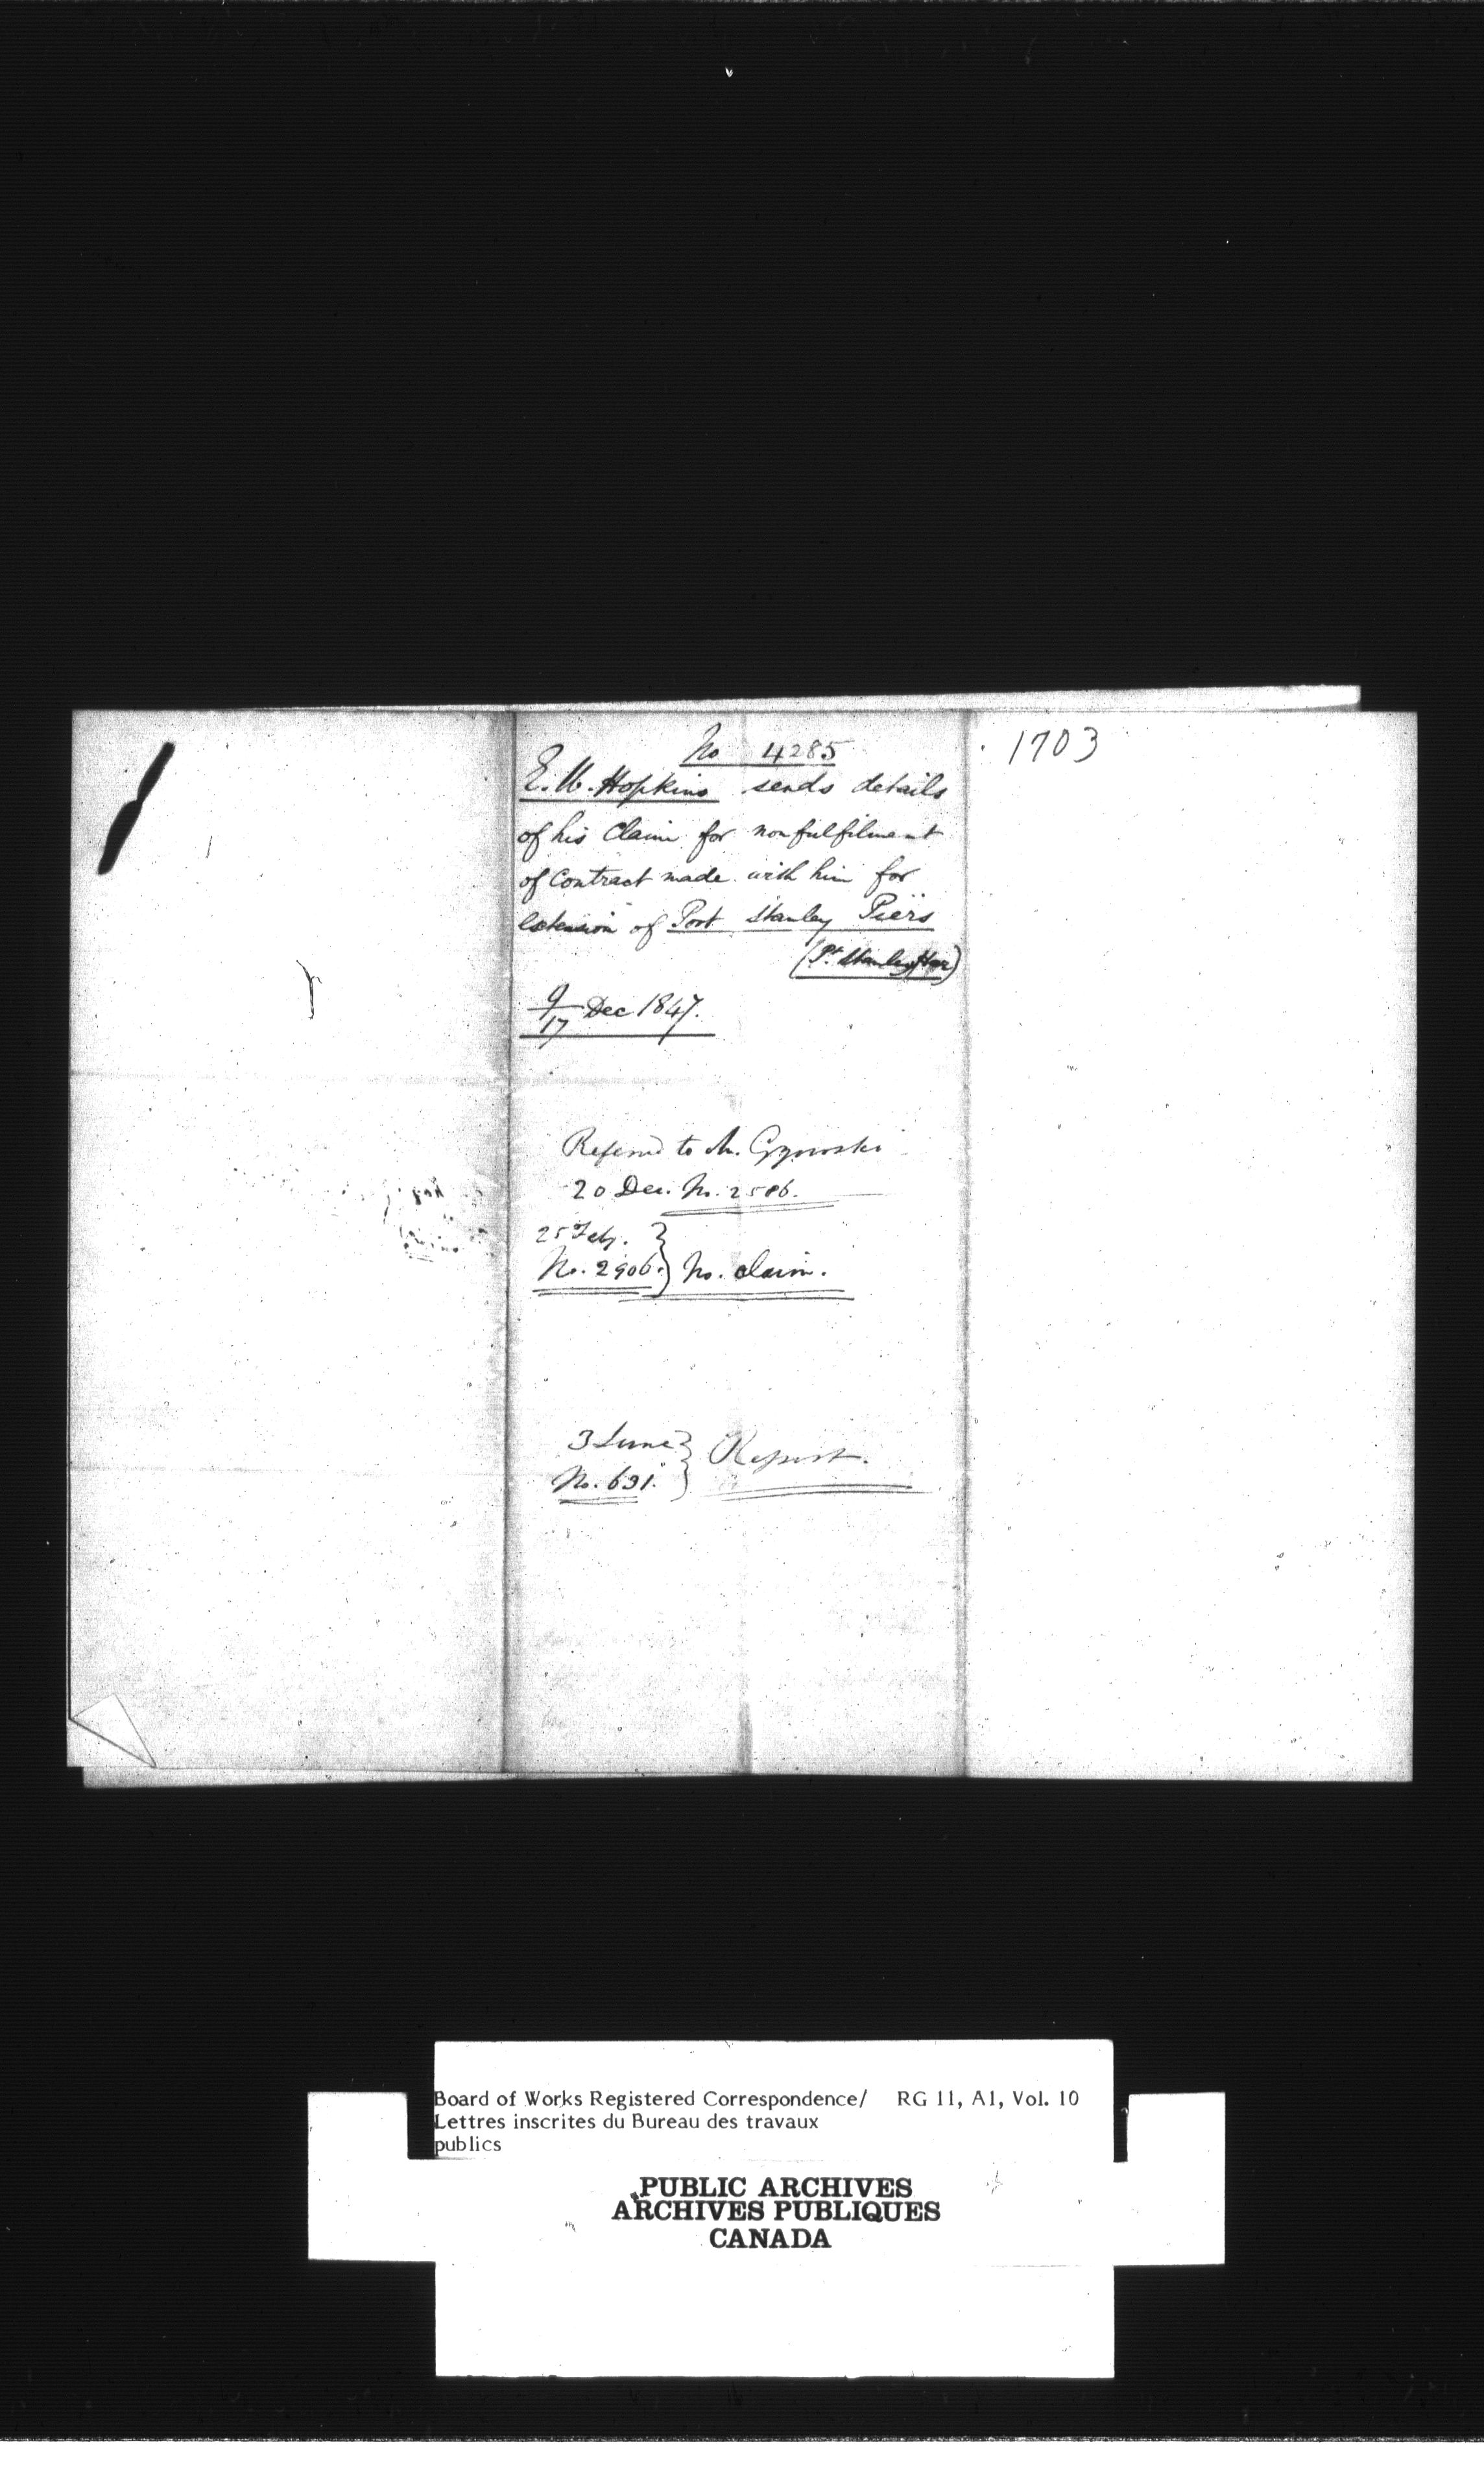 No 4285
E. W. Hopkins sends details
of his Claim for nonfulfilment
of Contract made with him for
extension of Port Stanley Piers
(Pt. Stanley Har)
9/17 Dec 1847.
Referred to Mr. Gzowski
20 Dec. No. 2586.
25 Feby. }
No. 2906. } No. claim.
3 June }
No. 631. } Report.
1703
Board of Works Registered Correspondence/ RG 11, A1, Vol. 10
Lettres inscrites du Bureau des travaux
publics
PUBLIC ARCHIVES
ARCHIVES PUBLIQUES
CANADA